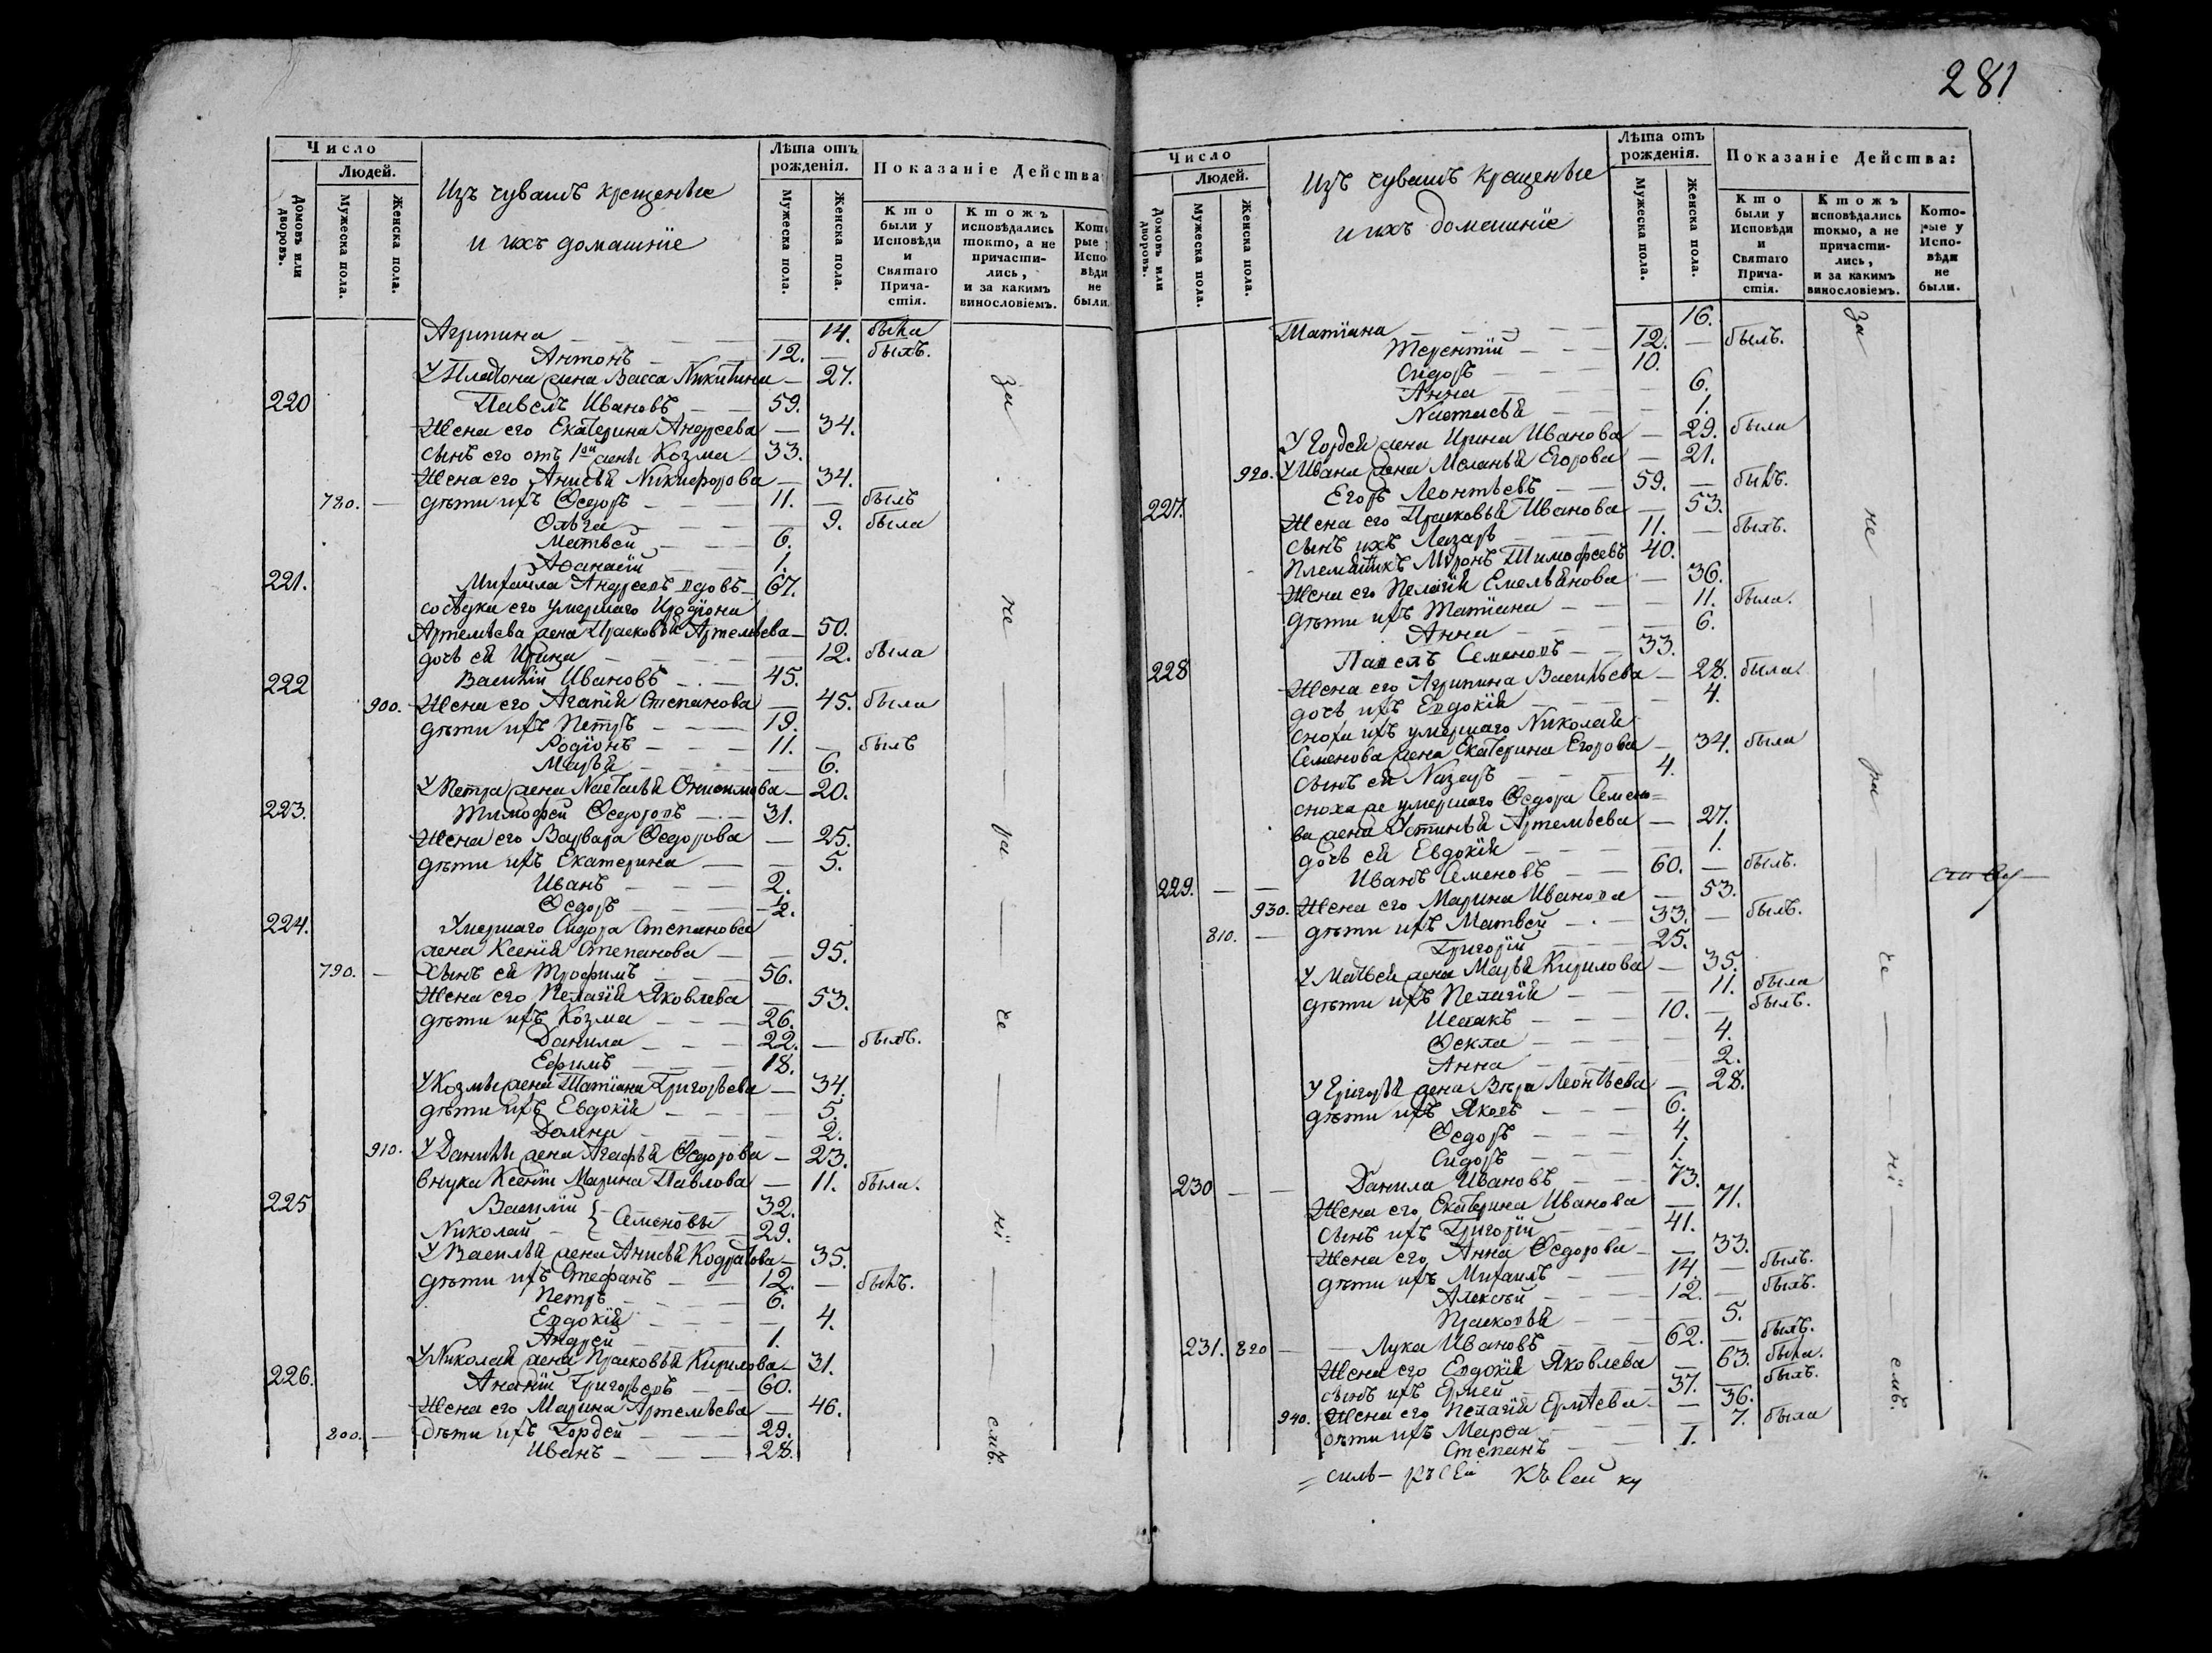 281
Число
Людей.
Домовъ или дворовъ.
Мужеска пола.
Женска пола.
Изъ чувашъ крещеные
и ихъ домашніе
Лѣта отъ рожденія.
Мужеска пола.
Женска пола.
Показаніе Действа:
Кто были у Исповѣди и Святаго Прича-стія.
Ктожъ исповѣдались токмо, а не причасти-лись, и за какимъ винословіемъ.
Кото рые у Испо вѣди не были.
Агрипина — 14. была
Антонъ — 12. — былъ.
У Платона жена Васса Никитина — 27.
220 Павелъ Ивановъ — 59.
Жена его Екатерина Андреева — 34.
сынъ его отъ 1ой жены Козма — 33.
Жена его Анисья Никифорова — 34.
780. — дѣти ихъ Ѳедоръ — 11. — былъ
Ольга — 9. была
Матвей — 6.
Аѳанасій — 1.
221. Михаила Андреевъ вдовъ — 67.
сосѣдка его умершаго Иродіона
Артемьева жена Прасковья Артемьева — 50.
дочь ея Ирина — 12. была
222 Василій Ивановъ — 45.
900. Жена его Агапія Степанова — 45. была
дѣти ихъ Петръ — 19.
Родіонъ — 11. — былъ
Марья — 6.
У Петра жена Настасья Онисимова — 20.
223. Тимофей Ѳедоровъ — 31.
Жена его Варвара Ѳедорова — 25.
дѣти ихъ Екатерина — 5.
Иванъ — 2.
Ѳедоръ — 1/2.
224. Умершаго Сидора Степанова
жена Ксенія Степанова — 95.
790. — Сынъ ея Трофимъ — 56.
Жена его Пелагія Яковлева — 53.
дѣти ихъ Козма — 26.
Данила — 22. — былъ.
Ефимъ — 18.
У Козмы жена Татіана Григорьева — 34.
дѣти ихъ Евдокія — 5.
Домна — 2.
910. У Данилы жена Агафья Ѳедорова — 23.
внука Ксеніи Марина Павлова — 11. была.
225 Василій } Семеновы 32.
Николай 29.
У Василья жена Анисья Кодратова — 35.
дѣти ихъ Стефанъ — 12. — былъ.
Петръ — 6.
Евдокія — 4.
Андрей — 1.
У Николая жена Прасковья Кирилова — 31.
226. Ананій Григорьевъ — 60.
Жена его Марина Артемьева — 46.
800. — дѣти ихъ Гордей — 29.
Иванъ — 28.
за не ра че ні емъ.
Число
Людей.
Домовъ или дворовъ.
Мужеска пола.
Женска пола.
Изъ чувашъ крещеные
и ихъ домашніе
Лѣта отъ рожденія.
Мужеска пола.
Женска пола.
Показаніе Действа:
Кто были у Исповѣди и Святаго Прича-стія.
Ктожъ исповѣдались токмо, а не причасти-лись, и за какимъ винословіемъ.
Кото-рые у Испо-вѣди не были.
Татіана — 16.
Терентій — 12. — былъ.
Сидоръ — 10.
Анна — 6.
Настасья — 1.
У Гордея жена Ирина Иванова — 29. была
920. У Ивана жена Меланья Егорова — 21.
227. Егоръ Леонтьевъ — 59. — былъ.
Жена его Прасковья Иванова — 53.
сынъ ихъ Лазарь — 11. — былъ.
Племянникъ Миронъ Тимофеевъ 40.
Жена его Пелагія Емельянова — 36.
дѣти ихъ Татіана — 11. была.
Анна — 6.
228 Павелъ Семеновъ — 33.
Жена его Агрипина Васильева — 28. была.
дочь ихъ Евдокія — 4.
сноха ихъ умершаго Николая
Семенова жена Екатерина Егорова — 34. была
сынъ ея Назаръ — 4.
сноха же умершаго Ѳедора Семено=
ва жена Устинья Артемьева — 27.
дочь ея Евдокія — 1.
229. — — Иванъ Семеновъ — 60. — былъ.
930. Жена его Марина Иванова — 53.
810. — дѣти ихъ Матвей — 33. — былъ.
Григорій — 25.
У Матвея жена Марья Кирилова — 35.
дѣти ихъ Пелагія — 11. была
Исаакъ — 10. — былъ.
Ѳекла — 4.
Анна — 2.
У Григорья жена Вѣра Леонтьева — 28.
дѣти ихъ Яковъ — 6.
Ѳедоръ — 4.
Сидоръ — 1.
230 — — Данила Ивановъ — 73.
Жена его Екатерина Иванова — 71.
сынъ ихъ Григорій — 41.
Жена его Анна Ѳедорова — 33.
дѣти ихъ Михаилъ — 14 — былъ.
Алексѣй — 12. — былъ.
Прасковья — 5.
231. 820 — Лука Ивановъ — 62. — былъ.
Жена его Евдокія Яковлева — 63. была.
сынъ ихъ Ермей — 37. — былъ.
940. Жена его Пелагія Ермѣева — 36.
дѣти ихъ Марѳа — 7. была
Степанъ — 1.
за не ра че ні емъ.